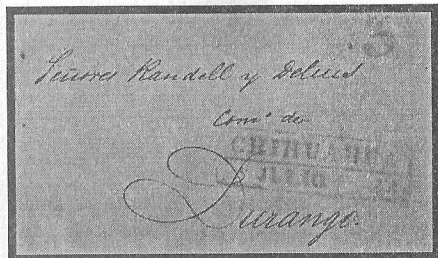 3
Señores Kandell y Delius
Comº de
CHIHUAHUA
JULIO
Durango.